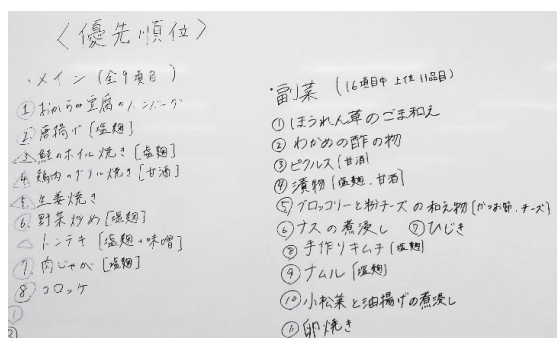 〈優先順位〉
・メイン (全9項目)
① おからの豆腐のハンバーグ
② 唐揚げ [塩麹]
3 鮭のホイル焼き [塩麹]
4 鶏肉のグリル焼き [甘酒]
5 生姜焼き
⑥ 野菜炒め [塩麹]
△ トンテキ [塩麹・味噌]
⑦ 肉じゃが [塩麹]
⑧ コロッケ
①
②
・副菜 (16項目中 上位11品目)
① ほうれん草のごま和え
② わかめの酢の物
③ ピクルス [甘酒]
④ 漬物 [塩麹、甘酒]
⑤ ブロッコリーと粉チーズの和え物 [かつお節、チーズ]
⑥ ナスの煮浸し ⑦ ひじき
⑧ 手作りキムチ [塩麹]
⑨ ナムル [塩麹]
⑩ 小松菜と油揚げの煮浸し
⑪ 卵焼き